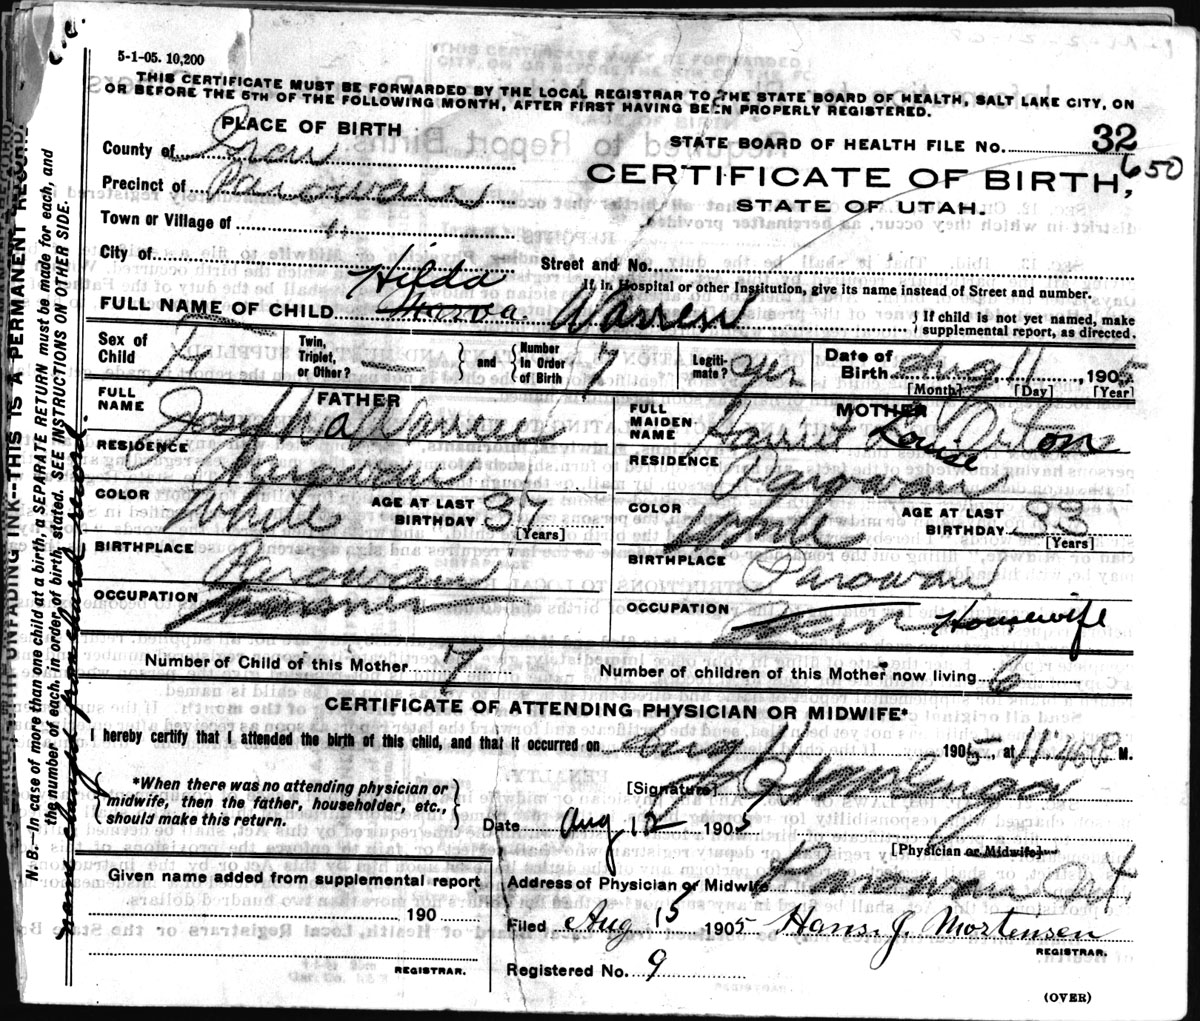 5-1-05. 10,200
THIS CERTIFICATE MUST BE FORWARDED BY THE LOCAL REGISTRAR TO THE STATE BOARD OF HEALTH, SALT LAKE CITY, ON
OR BEFORE THE 5TH OF THE FOLLOWING MONTH, AFTER FIRST HAVING BEEN PROPERLY REGISTERED.
PLACE OF BIRTH
County of Iron
Precinct of Parowan
Town or Village of
City of
STATE BOARD OF HEALTH FILE NO. 32
650
CERTIFICATE OF BIRTH,
STATE OF UTAH.
Street and No.
If in Hospital or other Institution, give its name instead of Street and number.
Hilda
FULL NAME OF CHILD Warren
If child is not yet named, make
supplemental report, as directed.
Sex of Child F
Twin, Triplet, or Other? — and Number In Order of Birth 7
Legitimate? yes
Date of Birth Aug 11, 1905
[Month] [Day] [Year]
FATHER
FULL NAME Warren
RESIDENCE Parowan
COLOR White AGE AT LAST BIRTHDAY 37
[Years]
BIRTHPLACE Parowan
OCCUPATION
MOTHER
FULL MAIDEN NAME Harriet Orton
RESIDENCE Parowan
COLOR White AGE AT LAST BIRTHDAY 33
[Years]
BIRTHPLACE Parowan
OCCUPATION Housewife
Number of Child of this Mother 7 Number of children of this Mother now living 6
CERTIFICATE OF ATTENDING PHYSICIAN OR MIDWIFE*
I hereby certify that I attended the birth of this child, and that it occurred on Aug 11 1905, at 11:45 P M.
*When there was no attending physician or
midwife, then the father, householder, etc.,
should make this return.
[Signature]
Date Aug 12 1905
[Physician or Midwife]
Given name added from supplemental report
190
REGISTRAR.
Address of Physician or Midwife Parowan
Filed Aug 15 1905 Hans. J. Mortensen
REGISTRAR.
Registered No. 9
(OVER)
N. B.--In case of more than one child at a birth, a SEPARATE RETURN must be made for each, and
the number of each, in order of birth, stated. SEE INSTRUCTIONS ON OTHER SIDE.
UNFADING INK--THIS IS A PERMANENT RECORD.